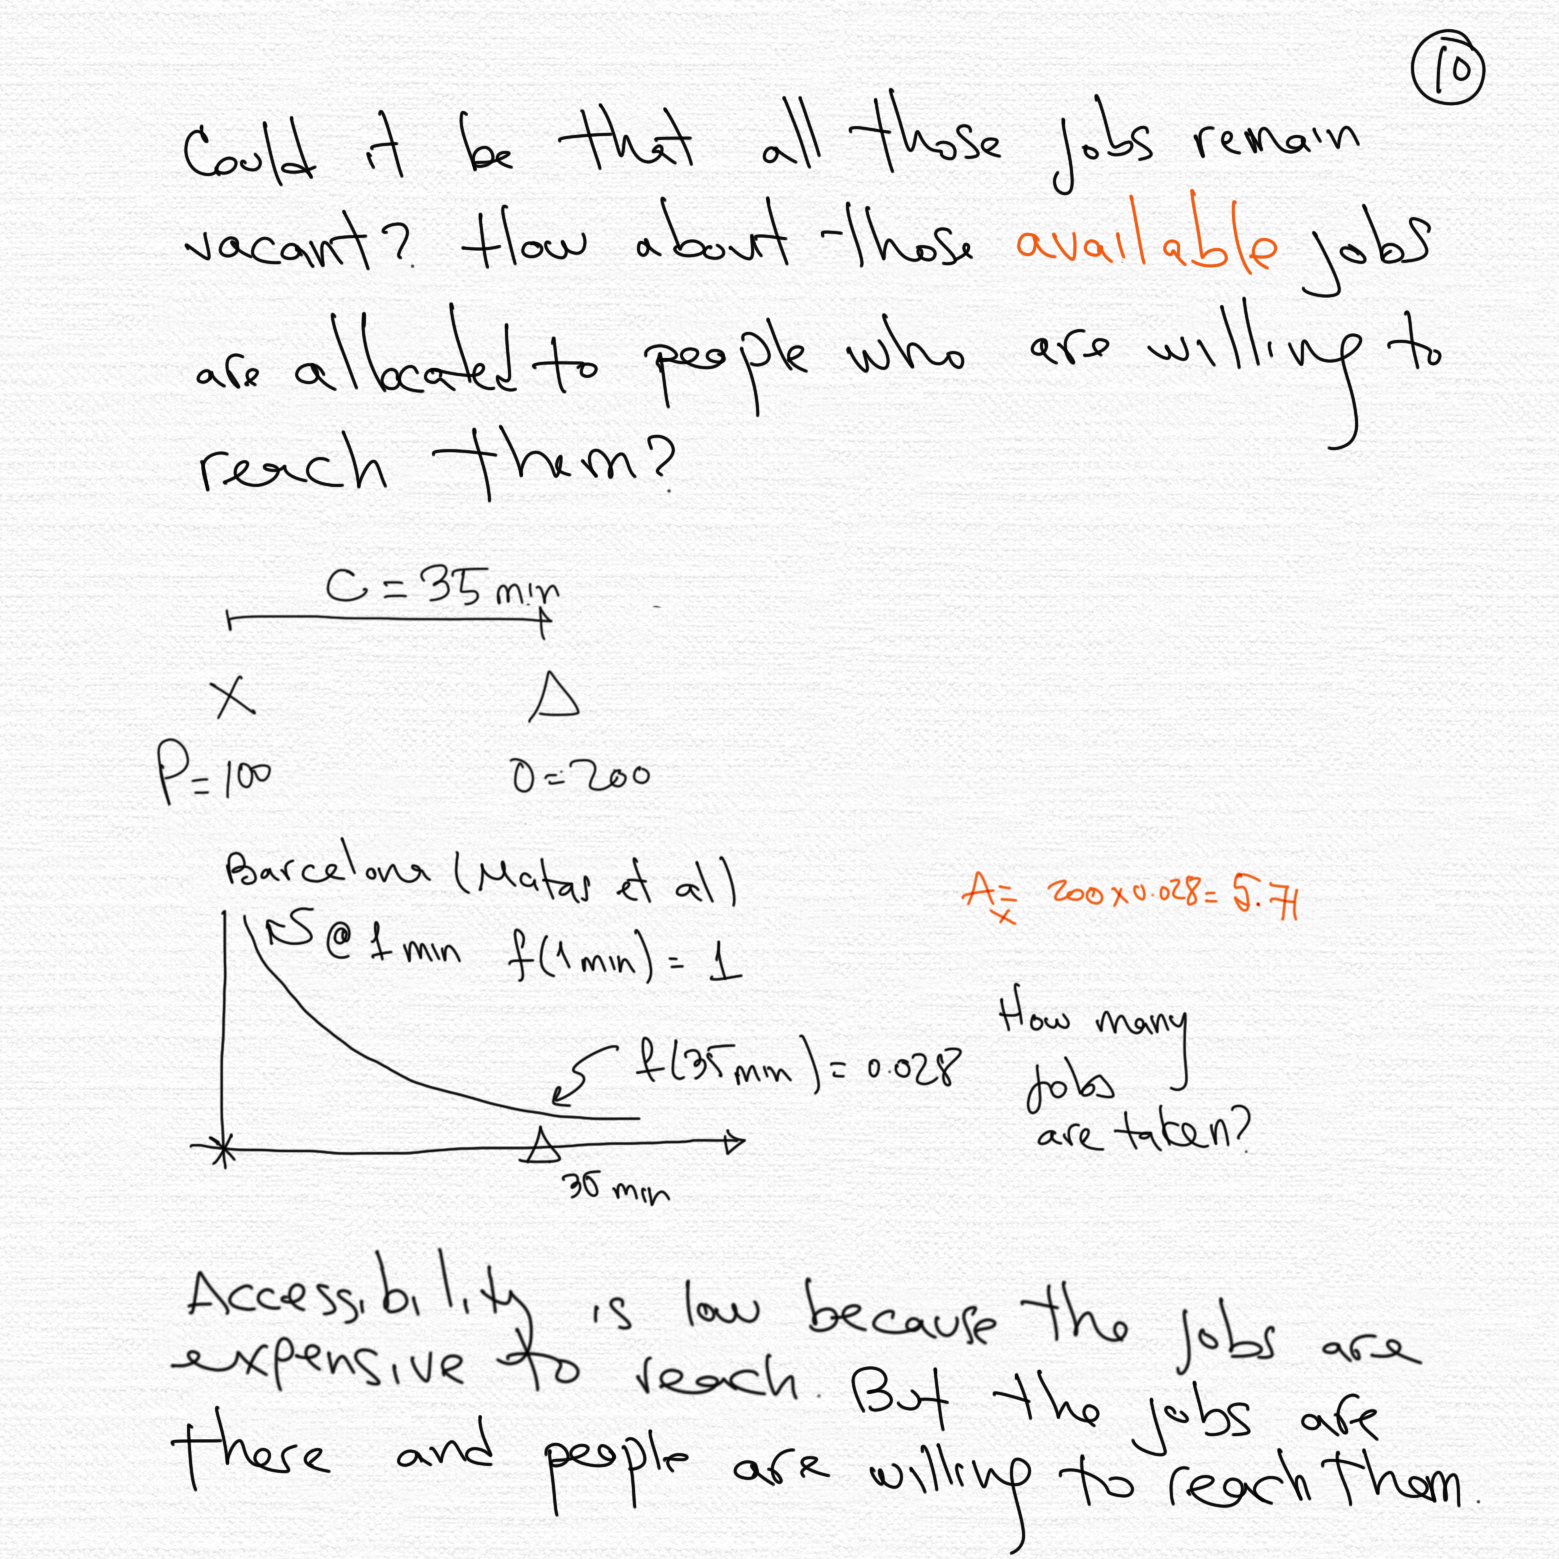 10
Could it be that all those jobs remain
vacant? How about those available jobs
are allocated to people who are willing to
reach them?
C = 35 min
X Δ
P = 100 O = 200
Barcelona (Matas et al)
@ 1 min f(1 min) = 1
A = 200 x 0.028 = 5.71
x
f(35 min) = 0.028
How many
jobs
are taken?
Δ
35 min
Accessibility is low because the jobs are
expensive to reach. But the jobs are
there and people are willing to reach them.